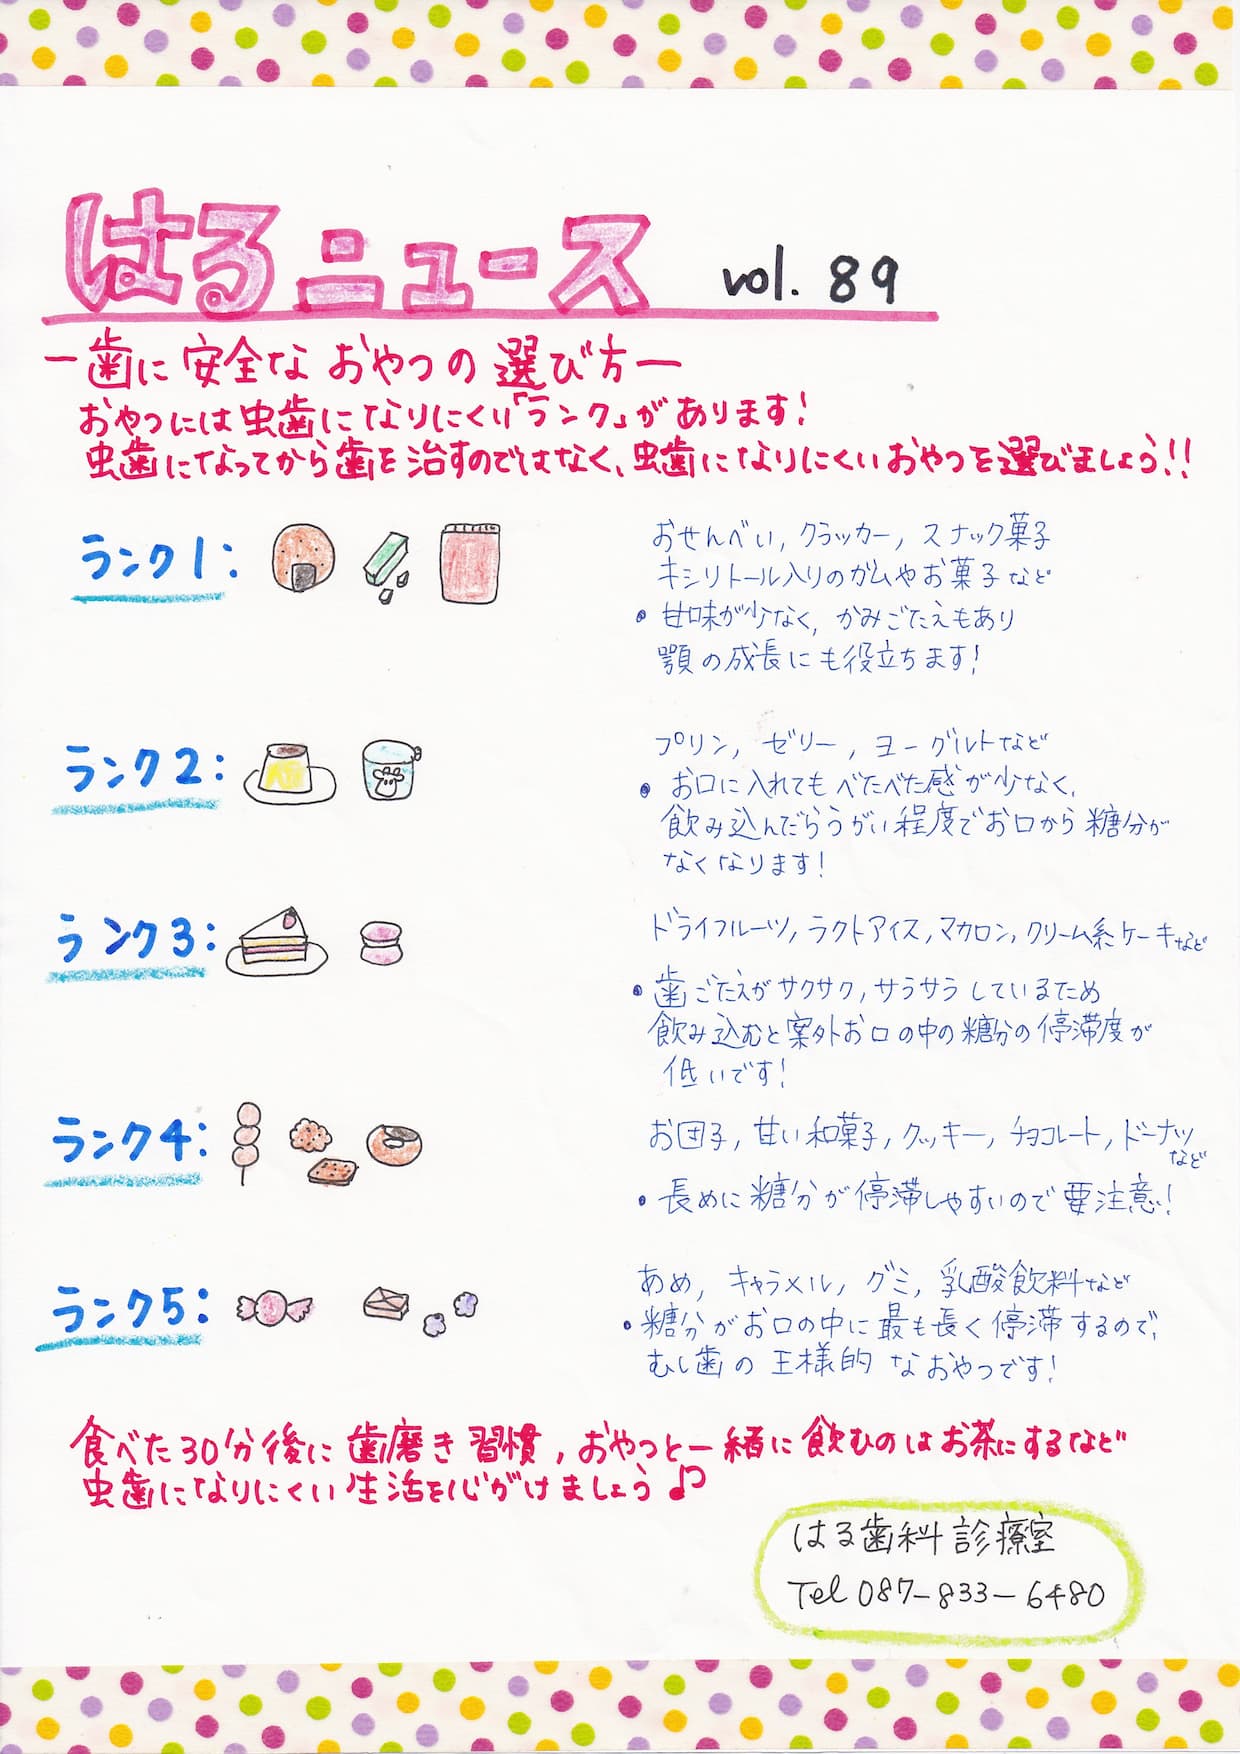 はるニュース vol. 89
ー歯に安全なおやつの選び方ー
おやつには虫歯になりにくい「ランク」があります!
虫歯になってから歯を治すのではなく、虫歯になりにくいおやつを選びましょう!!
ランク1:
おせんべい, クラッカー, スナック菓子
キシリトール入りのガムやお菓子など
• 甘味が少なく, かみごたえもあり
顎の成長にも役立ちます!
ランク2:
プリン, ゼリー, ヨーグルトなど
• お口に入れてもべたべた感が少なく,
飲み込んだらうがい程度でお口から糖分が
なくなります!
ランク3:
ドライフルーツ, ラクトアイス, マカロン, クリーム系ケーキなど
• 歯ごたえがサクサク, サラサラしているため
飲み込むと案外お口の中の糖分の停滞度が
低いです!
ランク4:
お団子, 甘い和菓子, クッキー, チョコレート, ドーナツ
など
• 長めに糖分が停滞しやすいので要注意!
ランク5:
あめ, キャラメル, グミ, 乳酸飲料など
• 糖分がお口の中に最も長く停滞するので,
むし歯の王様的なおやつです!
食べた30分後に歯磨き習慣, おやつと一緒に飲むのはお茶にするなど
虫歯になりにくい生活を心がけましょう♪
はる歯科診療室
Tel 087-833-6480